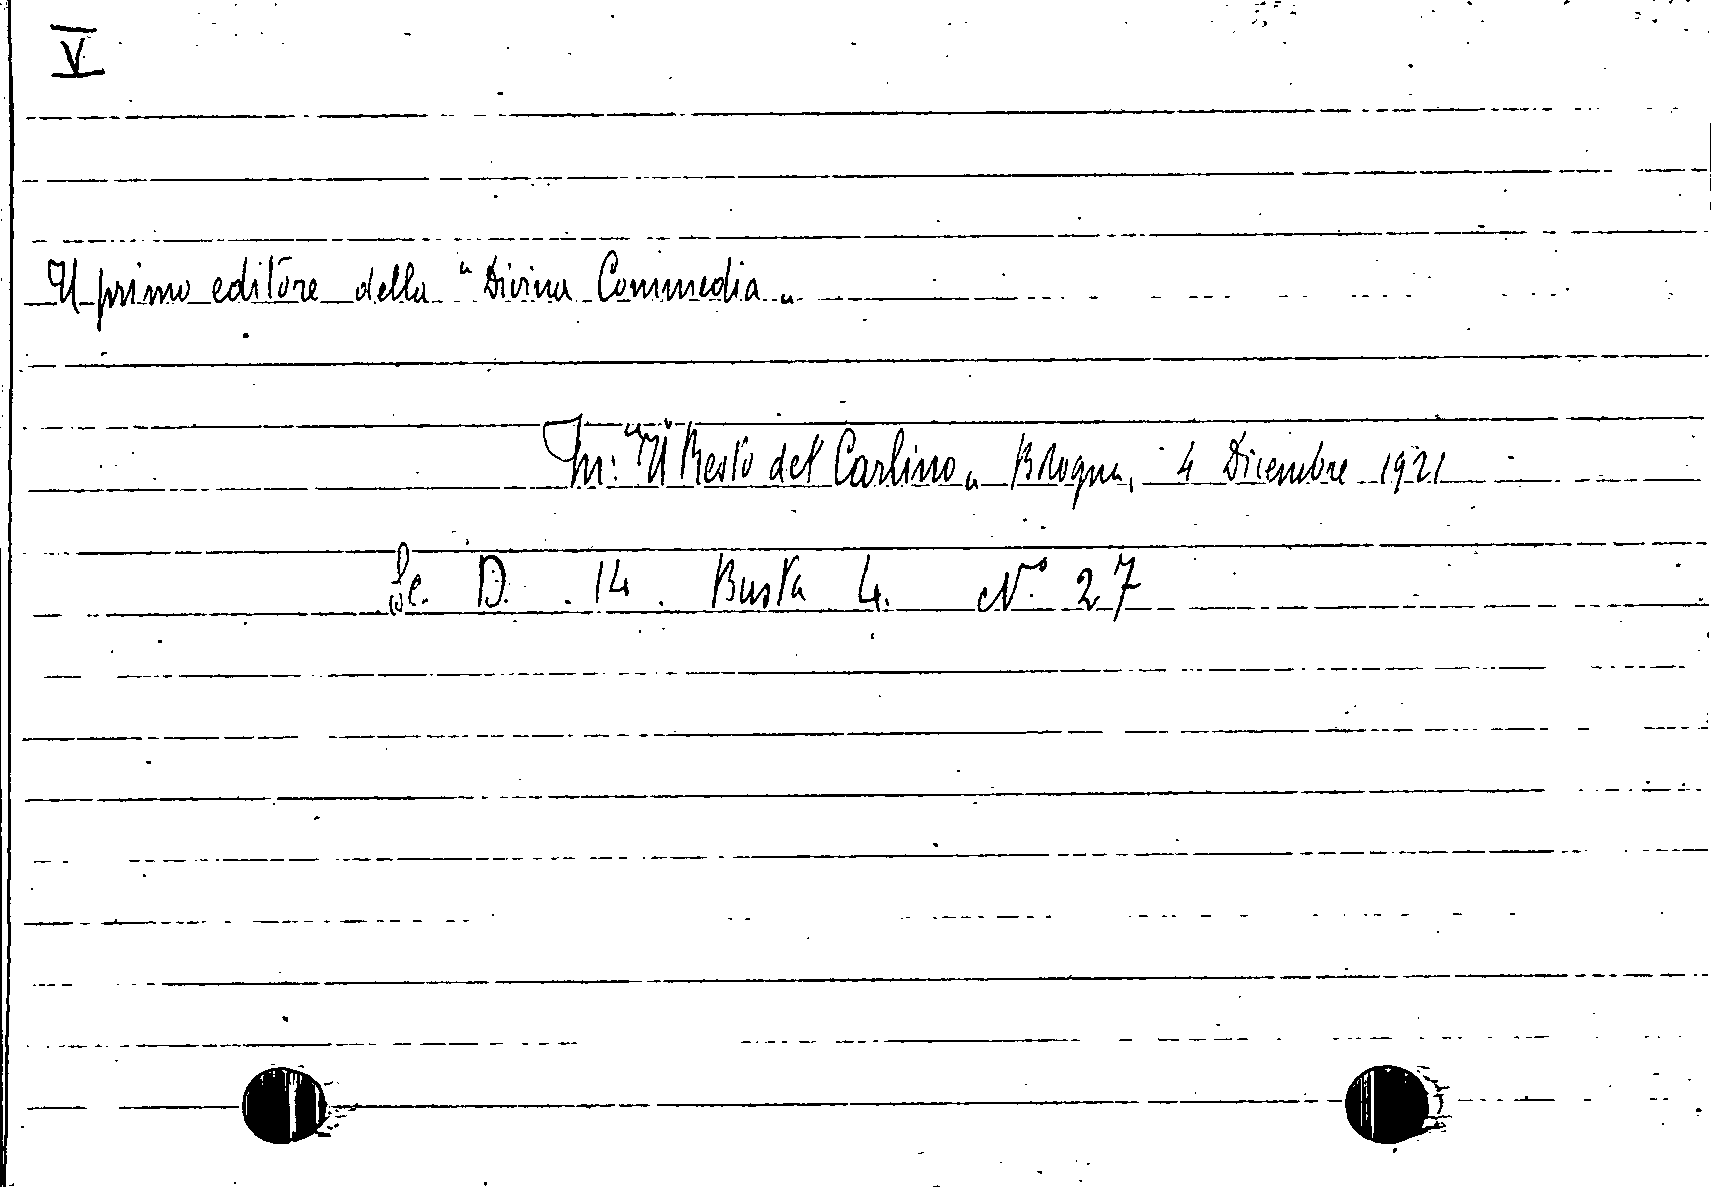 V
Il primo editore della "Divina Commedia„
In: "Il Resto del Carlino„ Bologna, 4 Dicembre 1921
Sc. D. 14. Busta 4. N.° 27